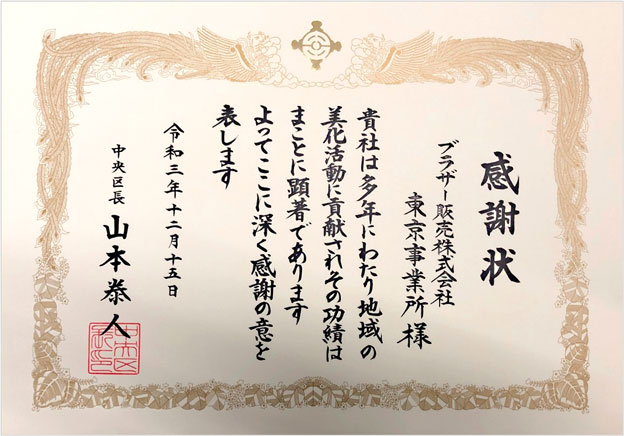 感謝状
ブラザー販売株式会社
東京事業所様
貴社は多年にわたり地域の
美化活動に貢献されその功績は
まことに顕著であります
よってここに深く感謝の意を
表します
令和三年十二月十五日
中央区長 山本泰人